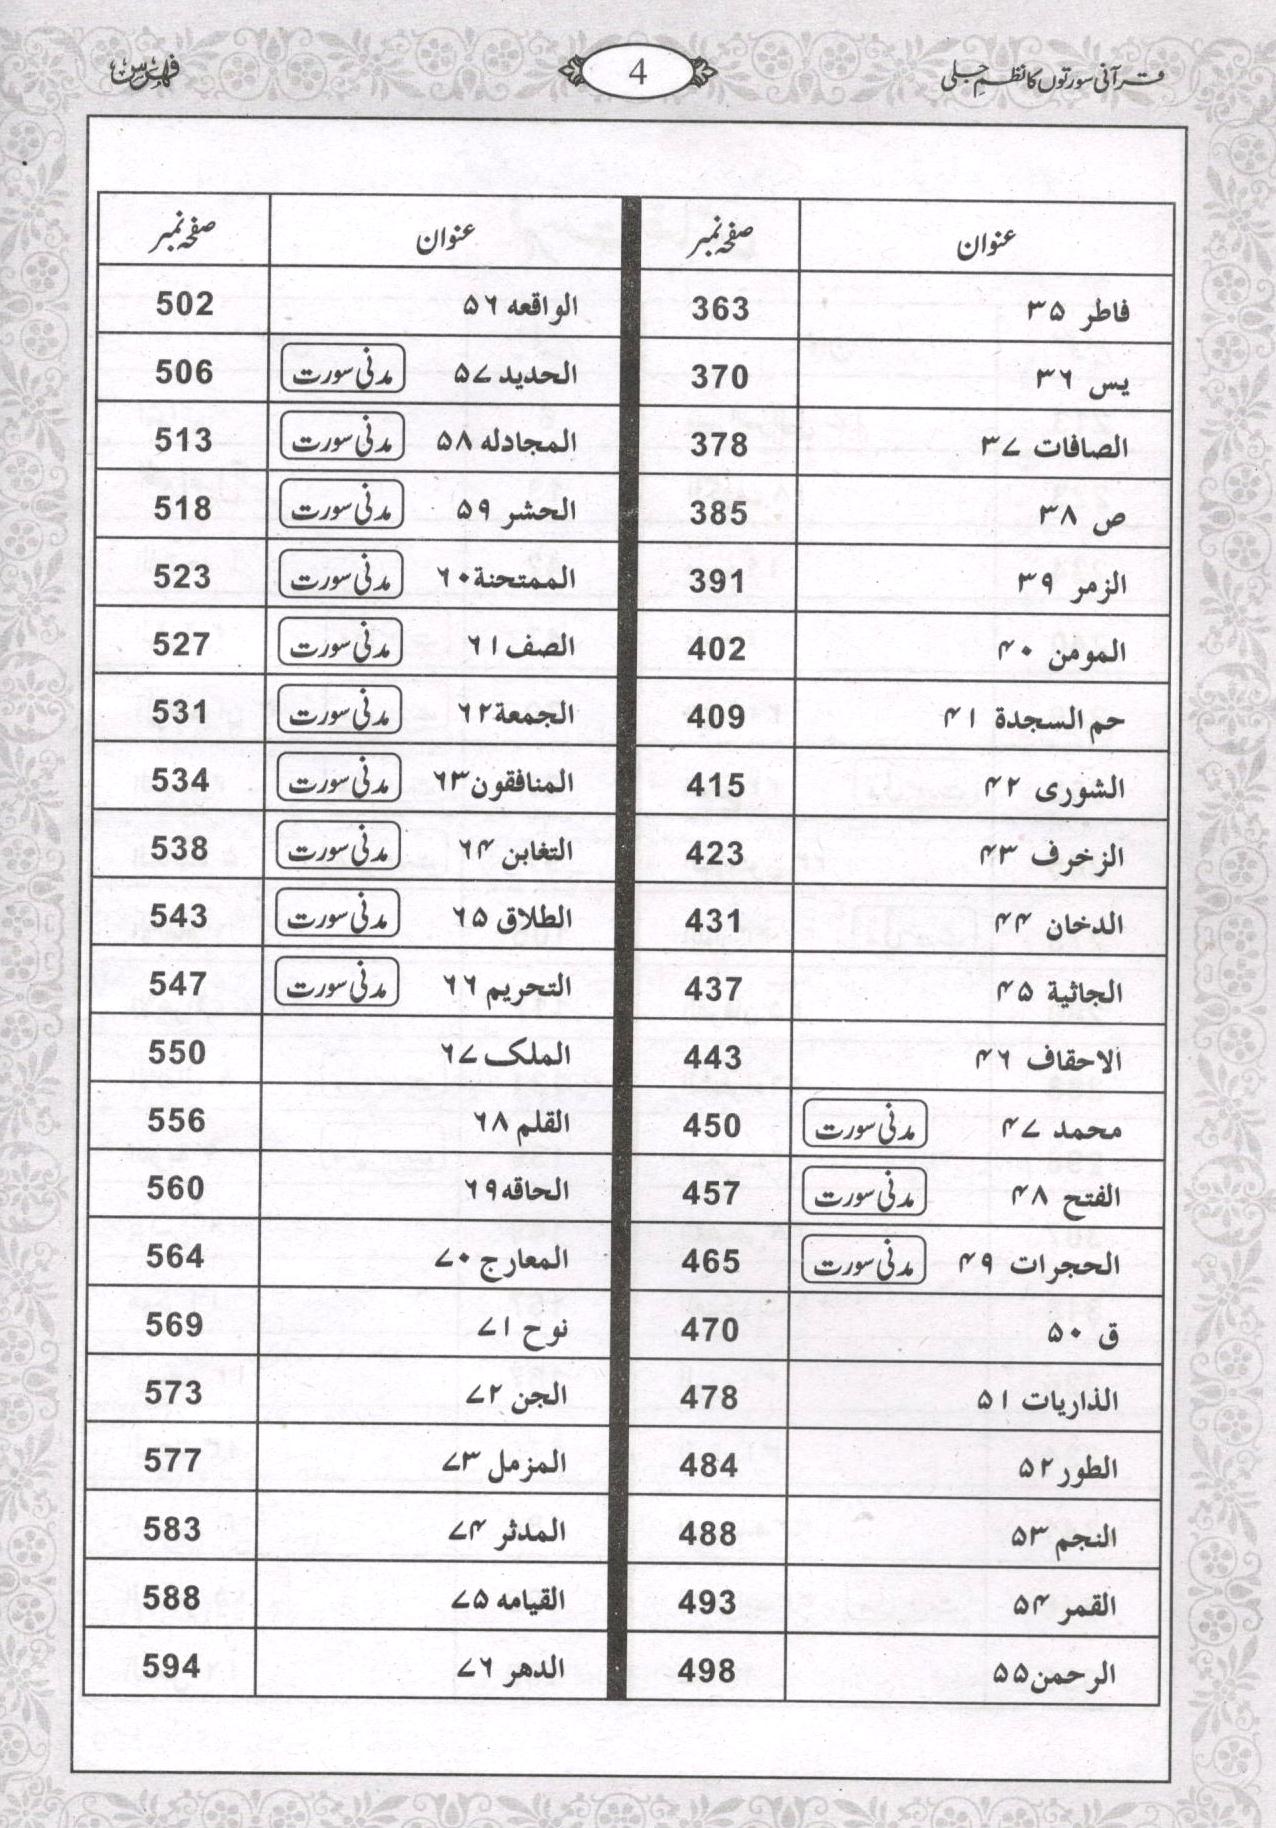 قرآنی سورتوں کا نظمِ جلی 4 فہرس
عنوان صفحہ نمبر عنوان صفحہ نمبر
فاطر ۳۵ 363 الواقعه ۵۶ 502
یس ۳۶ 370 الحدید ۵۷ مدنی سورت 506
الصافات ۳۷ 378 المجادله ۵۸ مدنی سورت 513
ص ۳۸ 385 الحشر ۵۹ مدنی سورت 518
الزمر ۳۹ 391 الممتحنة ۶۰ مدنی سورت 523
المومن ۴۰ 402 الصف ۶۱ مدنی سورت 527
حم السجدة ۴۱ 409 الجمعة ۶۲ مدنی سورت 531
الشوری ۴۲ 415 المنافقون ۶۳ مدنی سورت 534
الزخرف ۴۳ 423 التغابن ۶۴ مدنی سورت 538
الدخان ۴۴ 431 الطلاق ۶۵ مدنی سورت 543
الجاثیة ۴۵ 437 التحریم ۶۶ مدنی سورت 547
الاحقاف ۴۶ 443 الملک ۶۷ 550
محمد ۴۷ مدنی سورت 450 القلم ۶۸ 556
الفتح ۴۸ مدنی سورت 457 الحاقه ۶۹ 560
الحجرات ۴۹ مدنی سورت 465 المعارج ۷۰ 564
ق ۵۰ 470 نوح ۷۱ 569
الذاریات ۵۱ 478 الجن ۷۲ 573
الطور ۵۲ 484 المزمل ۷۳ 577
النجم ۵۳ 488 المدثر ۷۴ 583
القمر ۵۴ 493 القیامه ۷۵ 588
الرحمن ۵۵ 498 الدهر ۷۶ 594